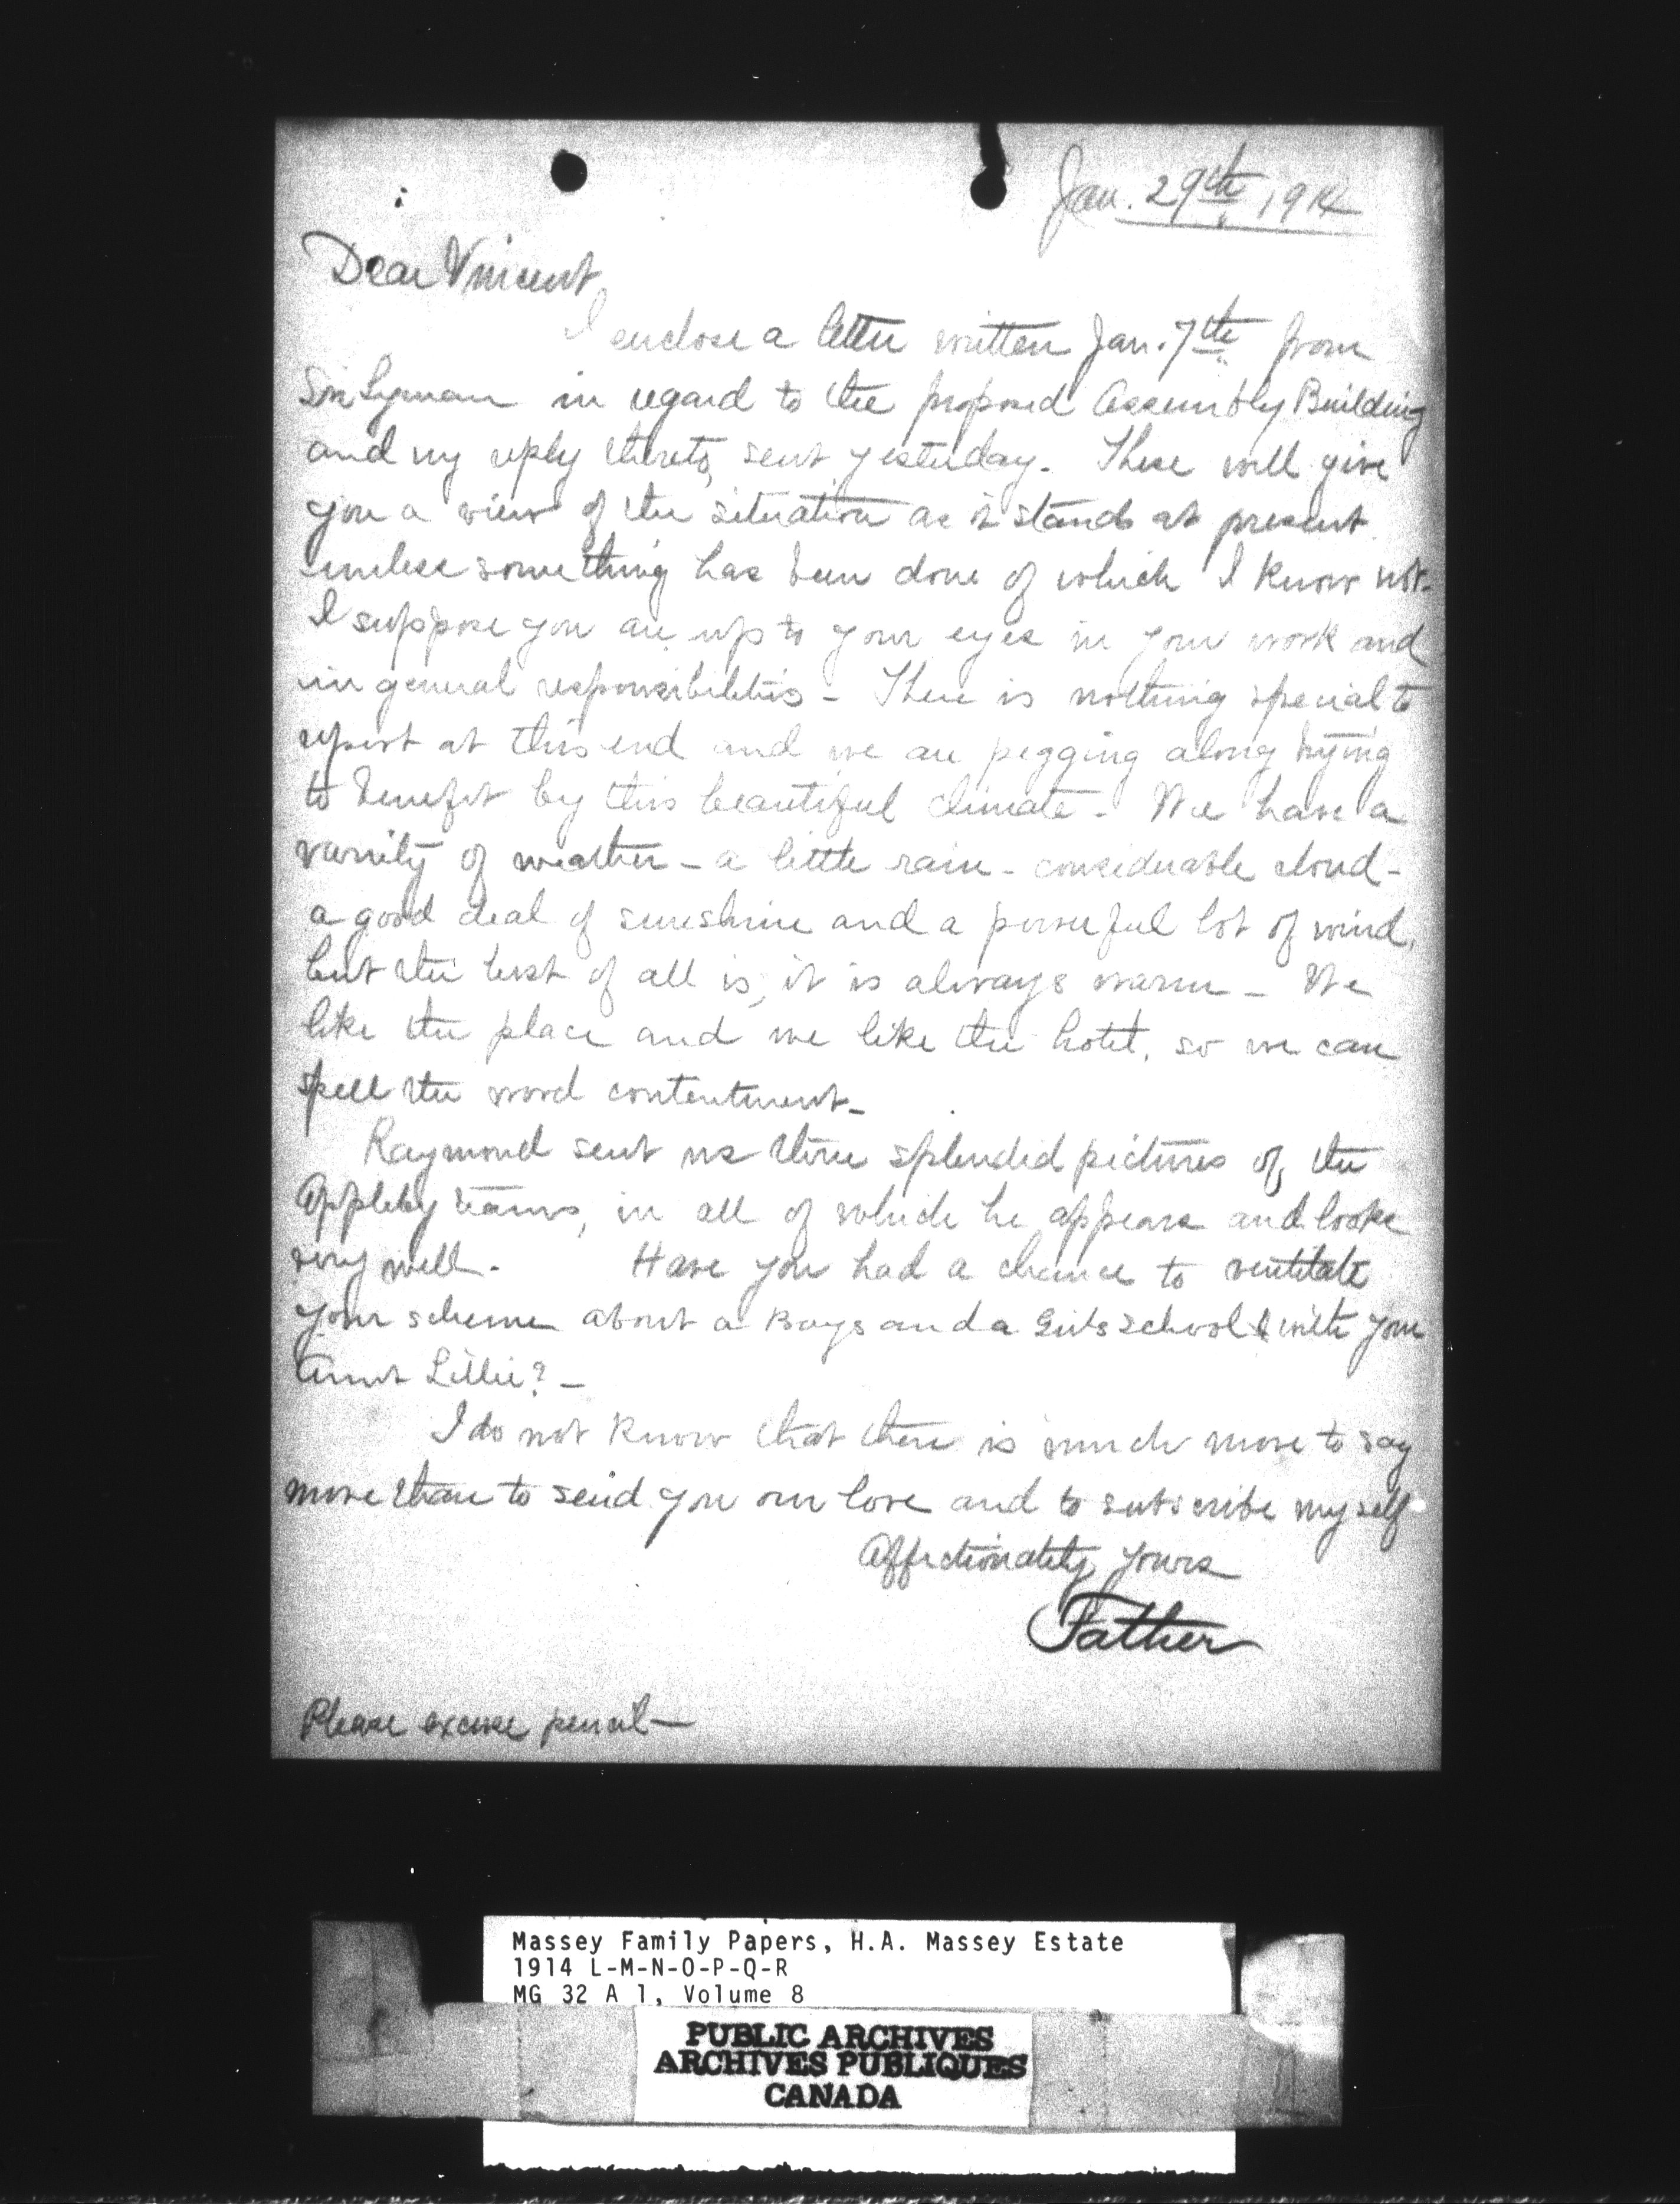 Jan. 29th, 1914
Dear Vincent,
I enclose a letter written Jan. 7th from
Sir Lyman in regard to the proposed Assembly Building
and my reply thereto, sent yesterday. These will give
you a view of the situation as it stands at present
unless something has been done of which I know not.
I suppose you are up to your eyes in your work and
in general responsibilities - There is nothing special to
report at this end and we are pegging along trying
to benefit by this beautiful climate - We have a
variety of weather - a little rain - considerable cloud -
a good deal of sunshine and a powerful lot of wind,
but the best of all is, it is always warm - We
like the place and we like the hotel, so we can
spell the word contentment -
Raymond sent us three splendid pictures of the
Appleby teams, in all of which he appears and looks
very well. Have you had a chance to ventilate
your scheme about a Boys and a Girls School with your
Aunt Lillie? -
I do not know that there is much more to say
more than to send you our love and to subscribe myself
Affectionately yours
Father
Please excuse pencil -
Massey Family Papers, H.A. Massey Estate
1914 L-M-N-O-P-Q-R
MG 32 A 1, Volume 8
PUBLIC ARCHIVES
ARCHIVES PUBLIQUES
CANADA